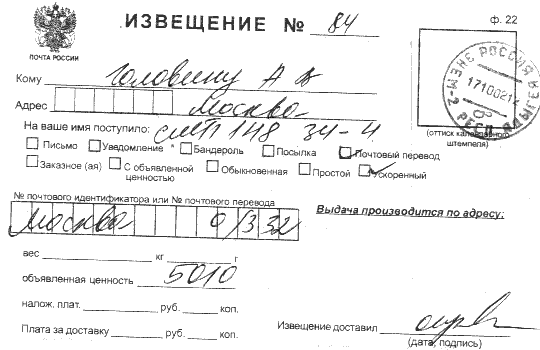 ИЗВЕЩЕНИЕ № 84
ф. 22
ПОЧТА РОССИИ
Кому Головину А
Адрес Москва
На ваше имя поступило: 148 34-4
Письмо Уведомление * Бандероль Посылка Почтовый перевод
Заказное (ая) С объявленной ценностью Обыкновенная Простой Ускоренный
(оттиск календарного штемпеля)
РОССИЯ
№ почтового идентификатора или № почтового перевода
Москва 0/332
Выдача производится по адресу:
вес кг г
объявленная ценность 5010
налож. плат. руб. коп.
Плата за доставку руб. коп.
Извещение доставил
(дата, подпись)